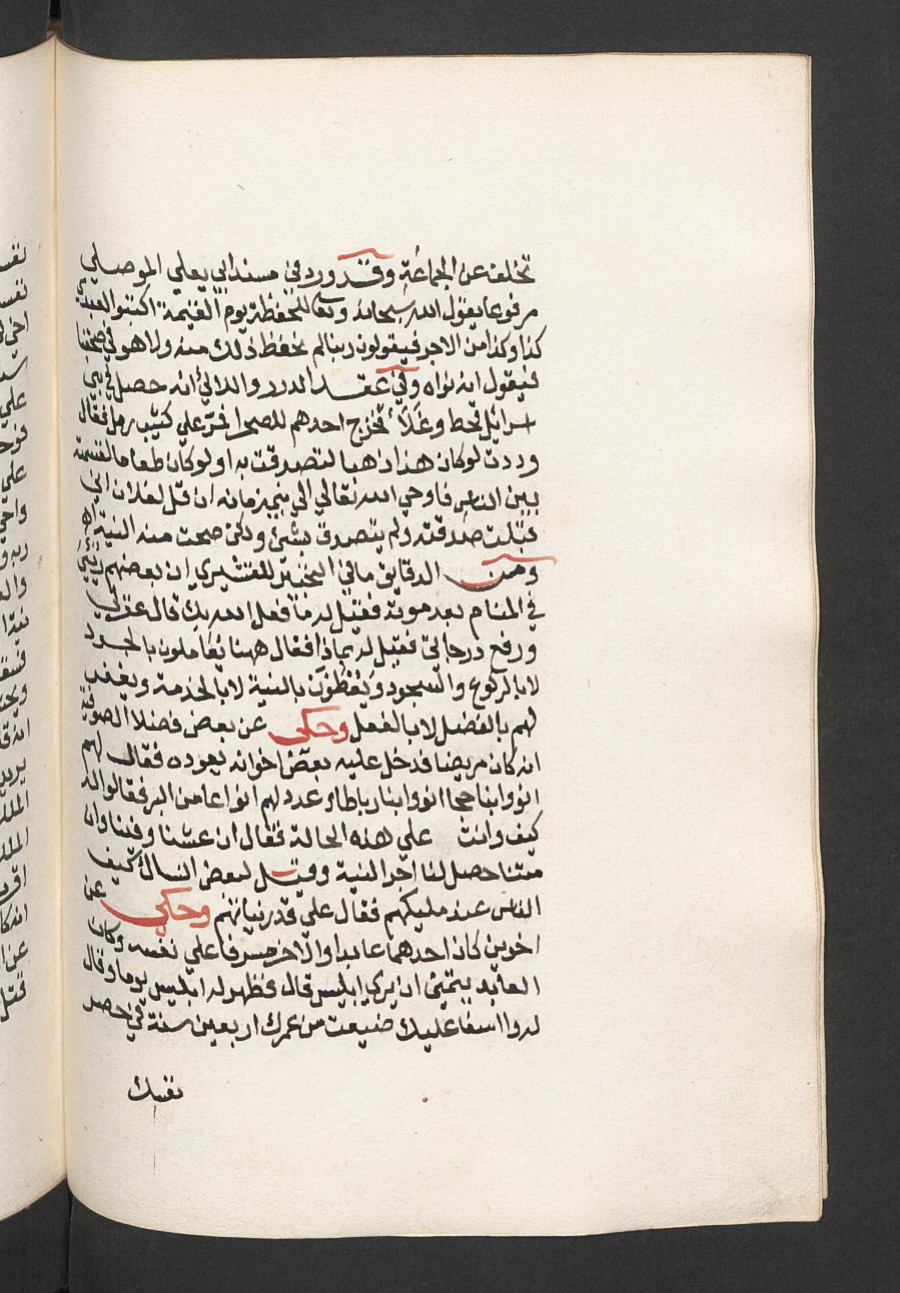 تخلف عن الجماعة وقد ورد في مسند ابي يعلي الموصلي
مرفوعا يقول الله سبحانه وتعا للحفظة يوم القيمة اكتبوا لعبدي
كذا وكذا من الاجر فيقولون ربنا لم نحفظ ذلك منه ولا هو في صحفنا
فيقول انه نواه وفي عقد الدرر واللالئ انه حصل في بني
اسرائل قحط وغلا فخرج احدهم للصحرا فمر علي كثيب رمل فقال
وددت لو كان هذا ذهبا لتصدقت به او لو كان طعاما لقسمته
بين الناس فاوحي الله تعالي الي نبي زمانه ان قل لفلان اني
قبلت صدقته ولم يتصدق بشئ ولكن صحت منه النية اه
ومن الدقايق ما في التحبير للقشيري ان بعضهم رُئيَ
في المنام بعد موته فقيل له ما فعل الله بك قال غفر لي
ورفع درجاتي فقيل له بماذا فقال ههنا يُعَاملون بالجود
لا بالركوع والسجود ويُعْطَوْنَ بالنية لا بالخدمة ويغفر
لهم بالفضل لا بالفعل وحكى عن بعض فضلا الصوفية
انه كان مريضا فدخل عليه بعض اخوانه يعوده فقال لهم
انووا بنا حجا انووا بنا رباطا وعدد لهم انواعا من البر فقالوا له
كيف وانت علي هذه الحالة فقال ان عشنا وفينا وان
متنا حصل لنا اجر النية وقيل لبعض النساك كيف
الناس عند مليكهم فقال علي قدر نياتهم وحكي عن
اخوين كان احدهما عابدا والاخر مسرفا علي نفسه وكان
العابد يتمنئ ان يري ابليس قال فظهر له ابليس يوما وقال
له وا اسفا عليك ضيعت من عمرك اربعين سنة في حصر
نفسك